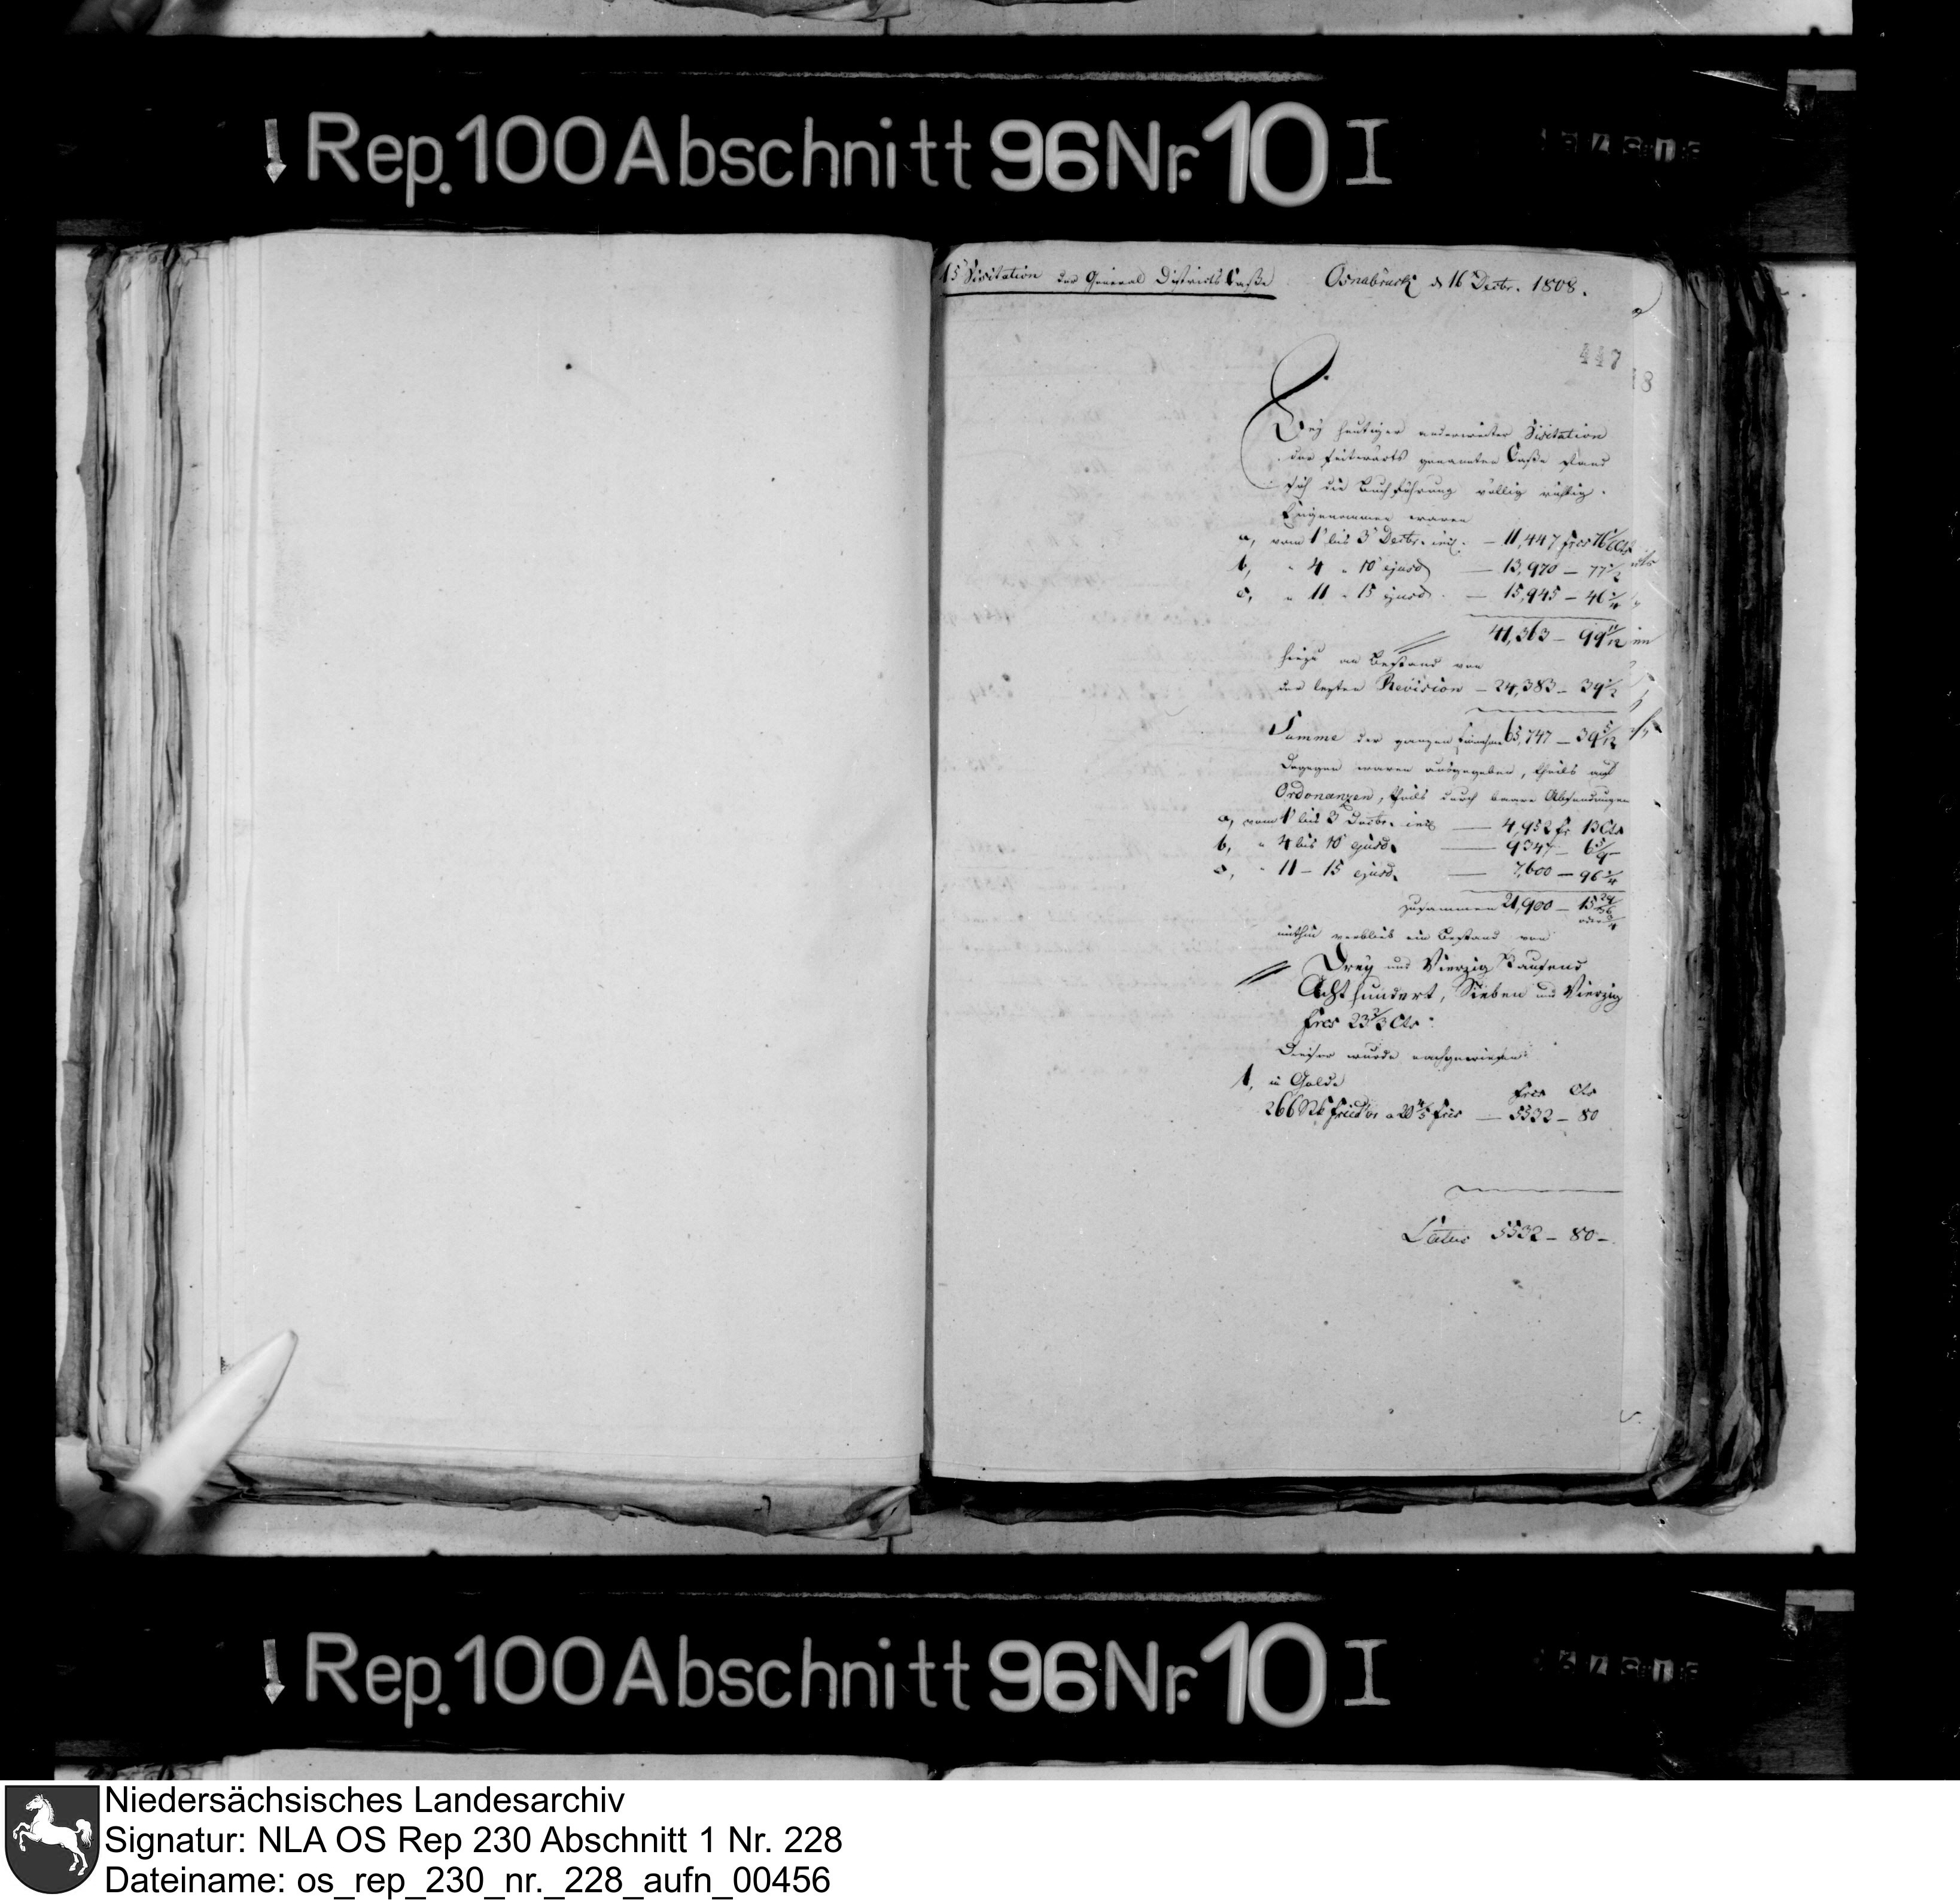 Rep. 100 Abschnitt 96 Nr. 10 I
15 Visitation der General Districts Casse
Osnabrück d 16 Decbr. 1808.
447
18
Bey heutiger anderweiter Visitation
der seitwärts genannten Casse fand
sich die Buchführung völlig richtig.
Eingenommen waren
a, vom 1 bis 3 Decbr. incl. — 11,447 frcs 76 1/6 Cts
b, " 4 " 10 ejusd — 13,970 — 77 1/2
c, " 11 " 15 ejusd. — 15,945 — 46 1/4
41,363 — 99 11/12
hiezu an Bestand von
der letzten Revision — 24,383 — 39 1/2
Summe der ganzen Einnahme 65,747 — 39 5/12
Dagegen waren ausgegeben, theils auf
Ordonanzen, theils durch baare Absendungen
a, vom 1 bis 3 Decbr. incl — 4,952 fr 13 Cts
b, " 4 bis 10 ejusd. — 9347 — 6 5/9
c, " 11 — 15 ejusd. — 7,600 — 96 1/4
zusammen 21,900 — 15 29/36
oder 3/4
mithin verblieb ein Bestand von
Drey und Vierzig Tausend
Acht hundert, Sieben und Vierzig
frcs 23 2/3 Cts.
Dieser wurde nachgewiesen:
1, in Golde
frcs Cts
266 Stk Fried'or a 20 4/5 frcs — 5532 — 80
Latus 5532 — 80 —
Rep. 100 Abschnitt 96 Nr. 10 I
Niedersächsisches Landesarchiv
Signatur: NLA OS Rep 230 Abschnitt 1 Nr. 228
Dateiname: os_rep_230_nr._228_aufn_00456